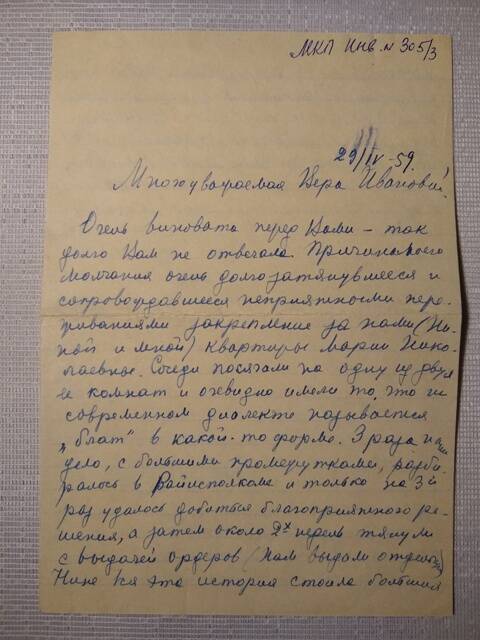 МКП Инв. N 305/3
29/IV-59.
Многоуважаемая Вера Ивановна!
Очень виновата перед Вами – так
долго Вам не отвечала. Причина моего
молчания очень долго затянувшееся и
сопровождавшееся неприятными пере-
живаниями закрепление за нами (Ни-
ной и мной) квартиры Марии Нико-
лаевны. Соседи посягали на одну из двух
ее комнат и очевидно имели то, что на
современном диалекте называется
„блат" в какой-то форме. 3 раза наше
дело, с большими промежутками, разби-
ралось в Райисполкоме и только на 3й
раз удалось добиться благоприятного ре-
шения, а затем около 2х недель тянули
с выдачей ордеров (нам выдали
Нине вся эта история стоила больших